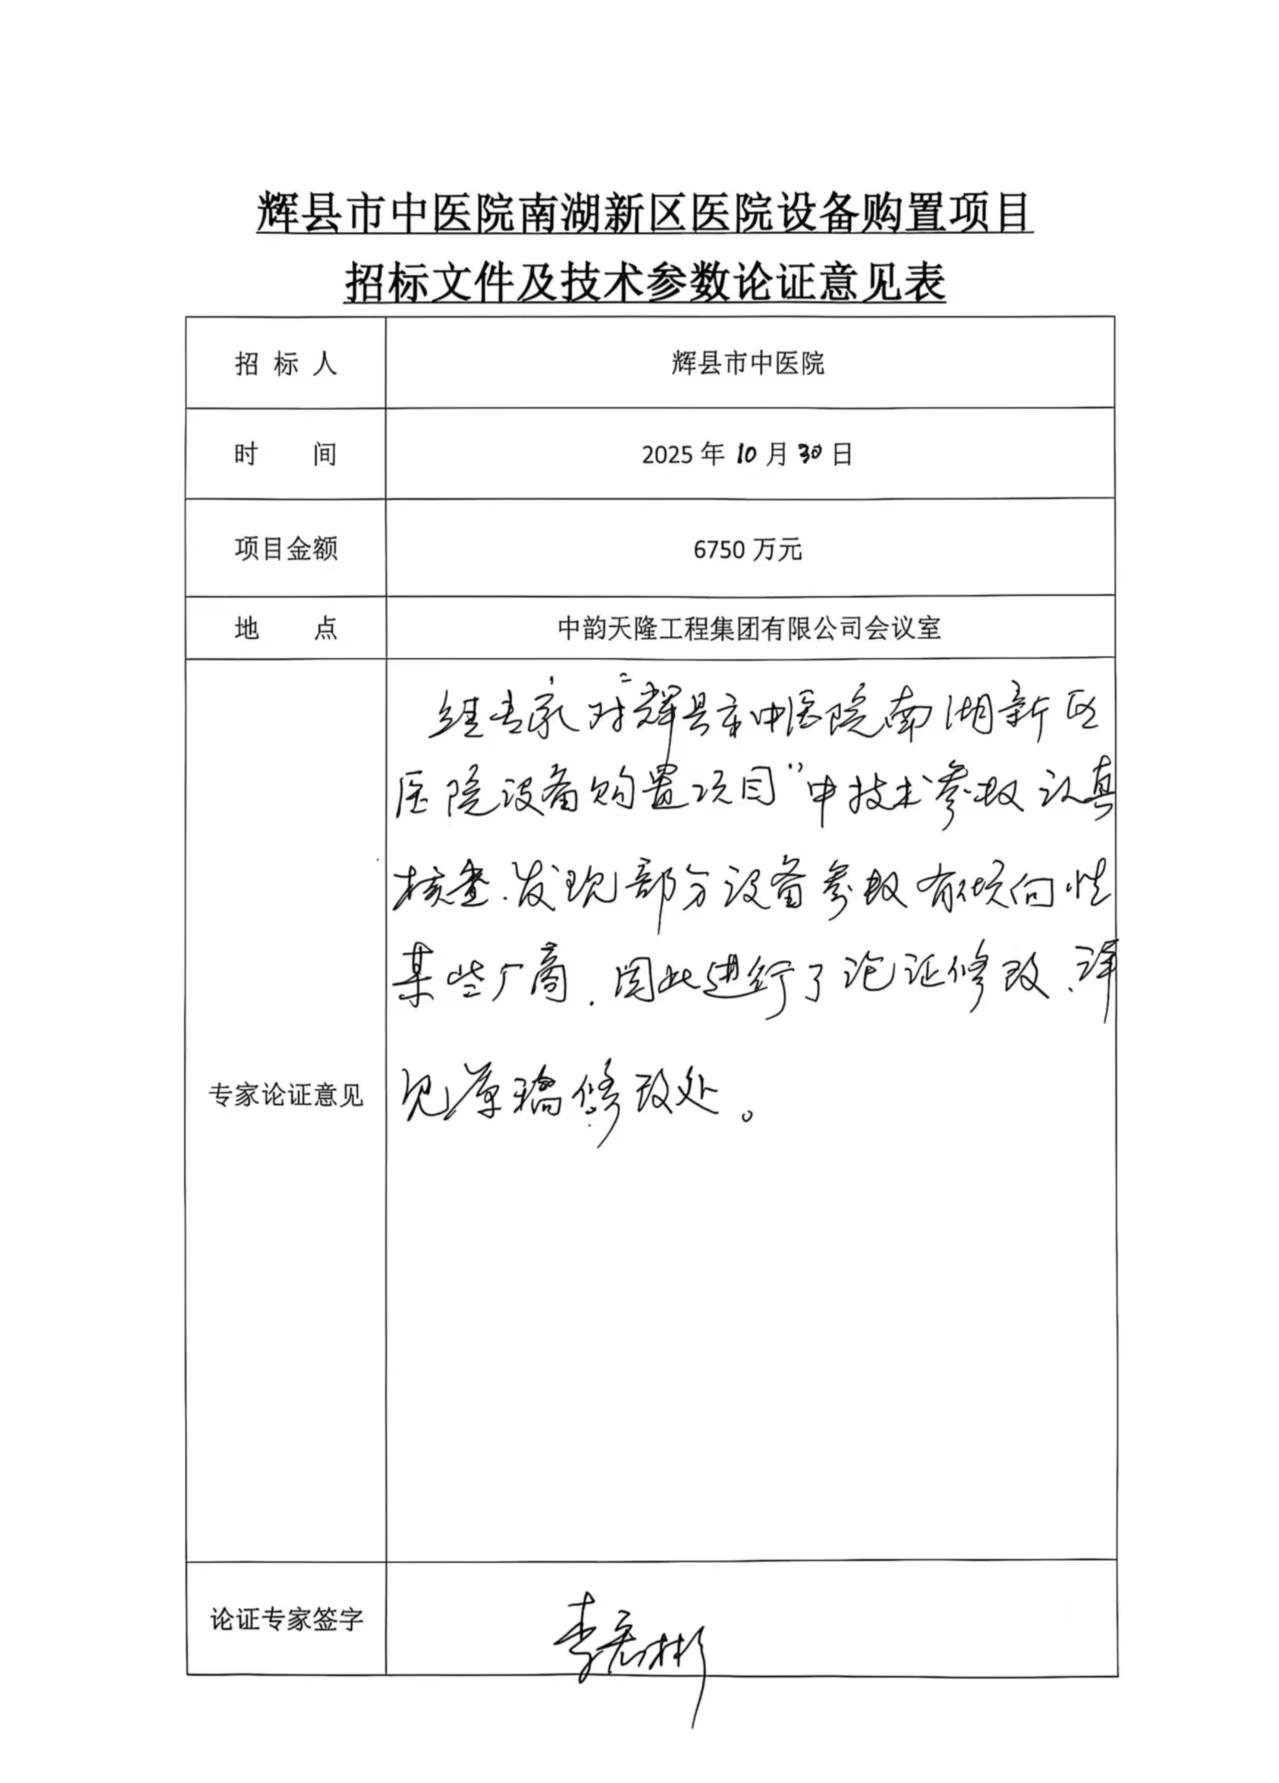 辉县市中医院南湖新区医院设备购置项目
招标文件及技术参数论证意见表
招标人 辉县市中医院
时间 2025年10月30日
项目金额 6750万元
地点 中韵天隆工程集团有限公司会议室
专家论证意见
经专家对“辉县市中医院南湖新区
医院设备购置项目”中技术参数认真
核查.发现部分设备参数有倾向性
某些厂商.因此进行了论证修改、详
见草稿修改处。
论证专家签字 李彬